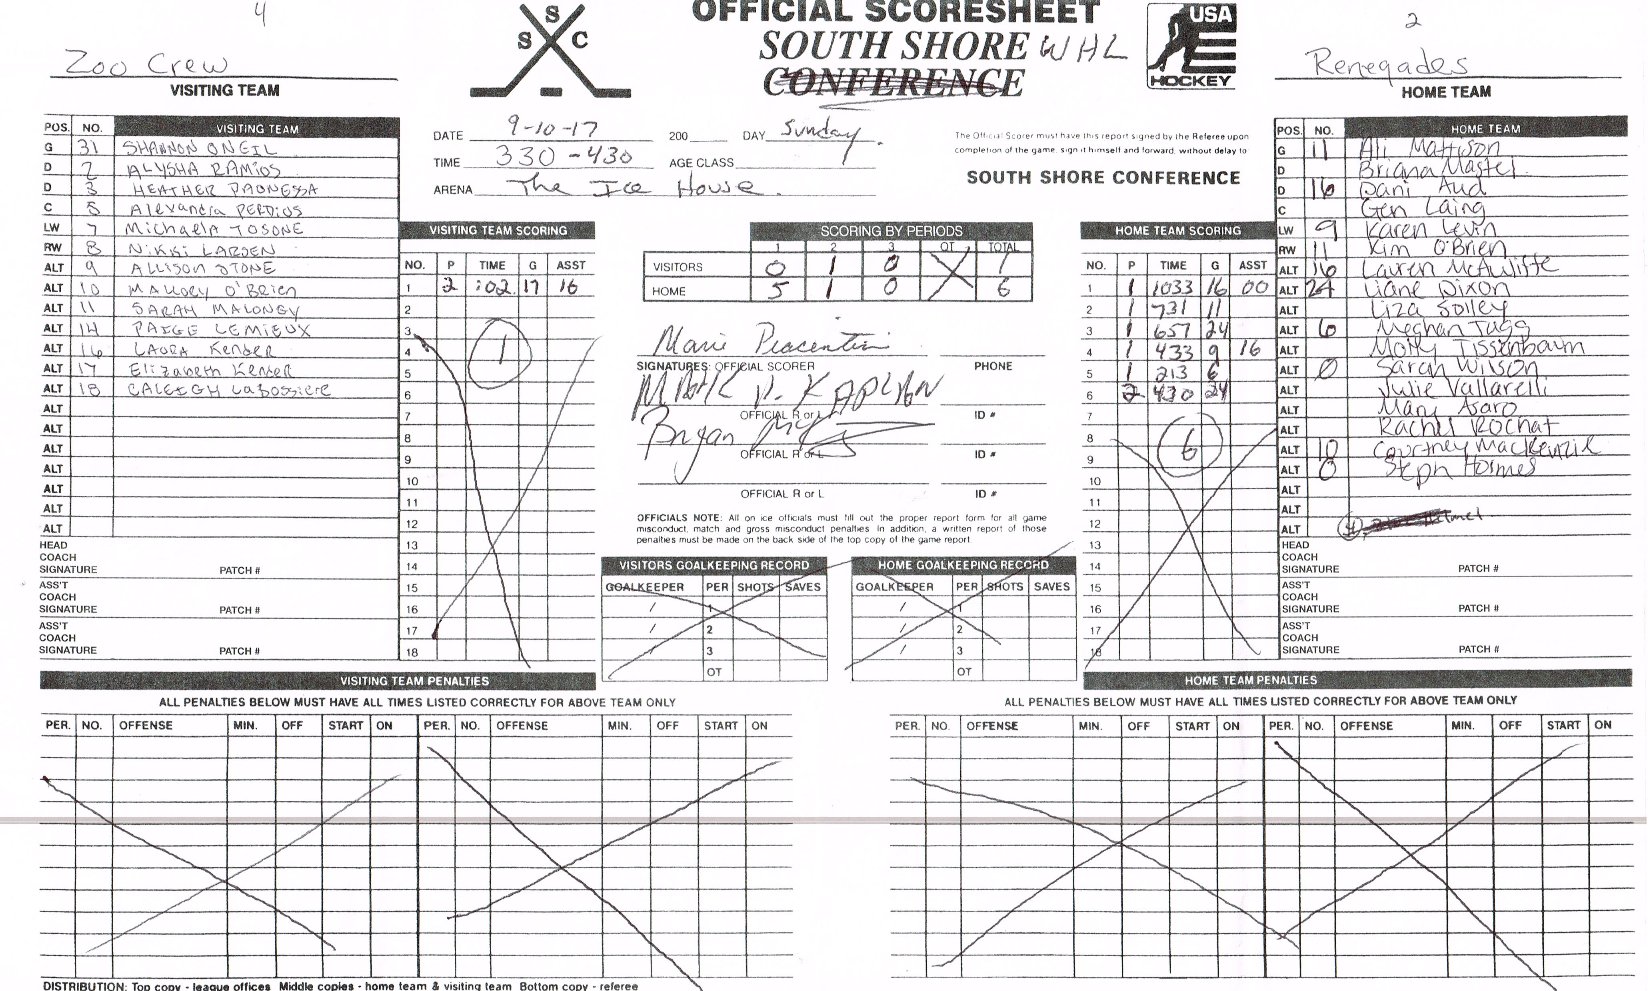 4
OFFICIAL SCORESHEET
SOUTH SHORE WHL
CONFERENCE
S S C
USA HOCKEY
2
Zoo Crew
VISITING TEAM
Renegades
HOME TEAM
DATE 9-10-17 200 DAY Sunday
TIME 330-430 AGE CLASS
ARENA The Ice House
The Official Scorer must have this report signed by the Referee upon
completion of the game, sign it himself and forward, without delay to
SOUTH SHORE CONFERENCE
POS. NO. VISITING TEAM
G 31 SHANNON ONEIL
D 2 ALYSHA RAMIOS
D 3 HEATHER PADNESSA
C 5 Alexandra PERDIOS
LW 7 Michaela TOSONE
RW 8 NIKKI LARSEN
ALT 9 ALLISON STONE
ALT 10 MALLORY O'BRIEN
ALT 11 SARAH MALONEY
ALT 14 PAIGE LEMIEUX
ALT 16 LAURA Kender
ALT 17 Elizabeth Kender
ALT 18 CALEIGH Labossiere
ALT
ALT
ALT
ALT
ALT
ALT
ALT
HEAD
COACH
SIGNATURE PATCH #
ASS'T
COACH
SIGNATURE PATCH #
ASS'T
COACH
SIGNATURE PATCH #
VISITING TEAM SCORING
NO. P TIME G ASST
1 2 :02 17 16
2
3
4
5
6
7
8
9
10
11
12
13
14
15
16
17
18
1
SCORING BY PERIODS
1 2 3 OT TOTAL
VISITORS 0 1 0 1
HOME 5 1 0 6
Marie Piacentini
SIGNATURES: OFFICIAL SCORER PHONE
MARK V. KAPLAN
OFFICIAL R or L ID #
Bryan
OFFICIAL R or L ID #
OFFICIAL R or L ID #
OFFICIALS NOTE: All on ice officials must fill out the proper report form for all game
misconduct, match and gross misconduct penalties. In addition, a written report of those
penalties must be made on the back side of the top copy of the game report.
VISITORS GOALKEEPING RECORD
GOALKEEPER PER SHOTS SAVES
/ 1
/ 2
/ 3
OT
HOME GOALKEEPING RECORD
GOALKEEPER PER SHOTS SAVES
/ 1
/ 2
/ 3
OT
HOME TEAM SCORING
NO. P TIME G ASST
1 1 1033 16 00
2 1 731 11
3 1 657 24
4 1 433 9 16
5 1 213 6
6 2 430 24
7
8
9
10
11
12
13
14
15
16
17
18
6
POS. NO. HOME TEAM
G 11 Ali Mattison
D Briana Mastel
D 16 Dani Aud
C Gen Laing
LW 9 Karen Levin
RW 11 Kim O'Brien
ALT 16 Lauren McAuliffe
ALT 24 Liane Dixon
ALT Liza Solley
ALT 6 Meghan Tagg
ALT Molly Tissenbaum
ALT 0 Sarah Wilson
ALT Julie Vallarelli
ALT Mary Asaro
ALT Rachel Rochat
ALT 10 Courtney MacKenzie
ALT 8 Steph Holmes
ALT
ALT
ALT
HEAD
COACH
SIGNATURE PATCH #
ASS'T
COACH
SIGNATURE PATCH #
ASS'T
COACH
SIGNATURE PATCH #
VISITING TEAM PENALTIES
ALL PENALTIES BELOW MUST HAVE ALL TIMES LISTED CORRECTLY FOR ABOVE TEAM ONLY
PER. NO. OFFENSE MIN. OFF START ON PER. NO. OFFENSE MIN. OFF START ON
HOME TEAM PENALTIES
ALL PENALTIES BELOW MUST HAVE ALL TIMES LISTED CORRECTLY FOR ABOVE TEAM ONLY
PER. NO. OFFENSE MIN. OFF START ON PER. NO. OFFENSE MIN. OFF START ON
DISTRIBUTION: Top copy - league offices Middle copies - home team & visiting team Bottom copy - referee